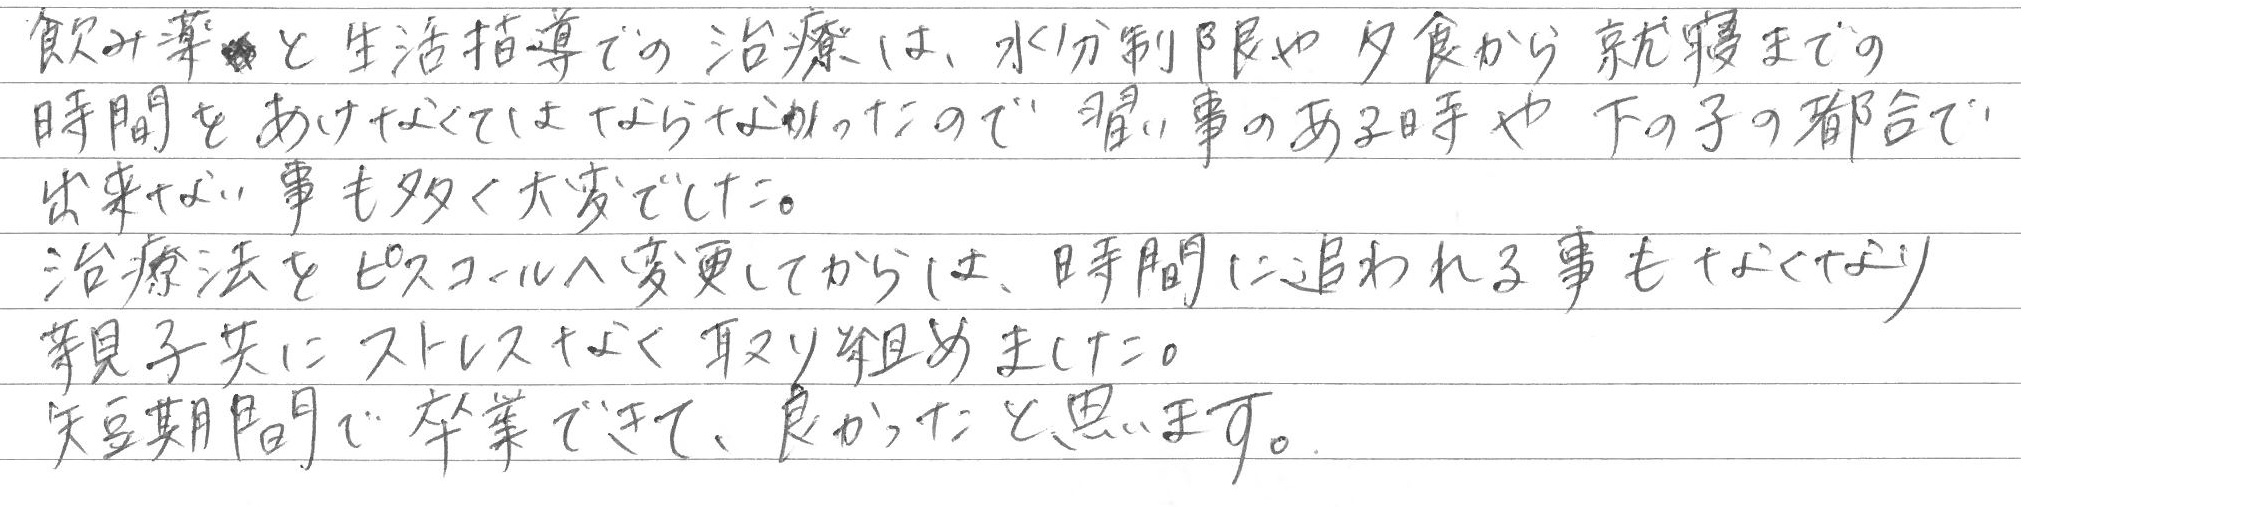 飲み薬と生活指導での治療は、水分制限や夕食から就寝までの
時間をあけなくてはならなかったので習い事のある時や下の子の都合で
出来ない事も多く大変でした。
治療法をピスコールへ変更してからは、時間に追われる事もなくなり
親子共にストレスなく取り組めました。
短期間で卒業できて、良かったと思います。